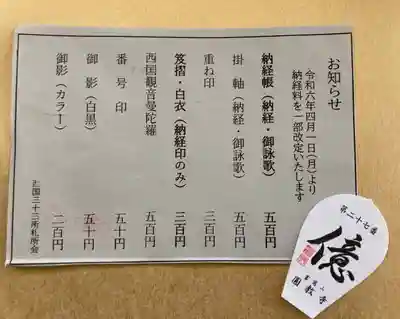 お知らせ
令和六年四月一日(月)より
納経料を一部改定いたします
納経帳(納経・御詠歌) 五百円
掛軸(納経・御詠歌) 五百円
重ね印 五百円
笈摺・白衣(納経印のみ) 三百円
西国観音曼陀羅 五百円
番号印 五十円
御影(白黒) 五十円
御影(カラー) 二百円
西国三十三所札所会
第二十七番
億
圓教寺